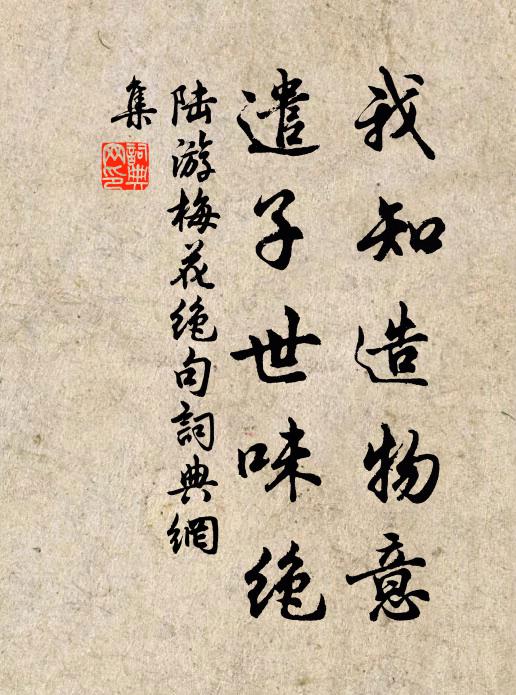 我知造物意
遣子世味绝
陆游梅花绝句詞典網
集
詞典網印